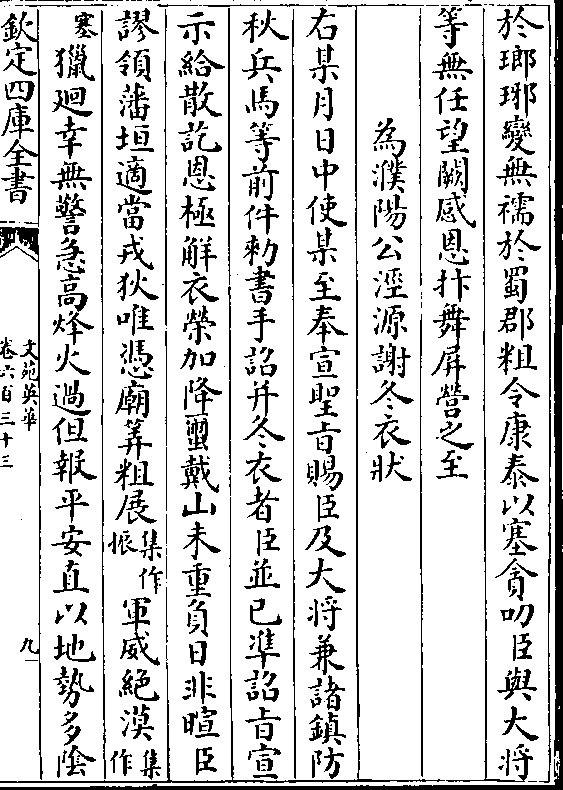 於瑯琊變無襦於蜀郡粗令康泰以塞貪叨臣與大將
等無任望闕感恩抃舞屏營之至
為濮陽公涇源謝冬衣狀
右某月日中使某至奉宣聖旨賜臣及大將兼諸鎮防
秋兵馬等前件勅書手詔并冬衣者臣並已準詔旨宣
示給散訖恩極解衣榮加降璽戴山未重負日非暄臣
謬領藩垣適當戎狄唯憑廟筭粗展集作振軍威絶漠集作
塞獵廻幸無警急高烽火過但報平安直以地勢多陰
欽定四庫全書
文苑英華
卷六百三十三
九